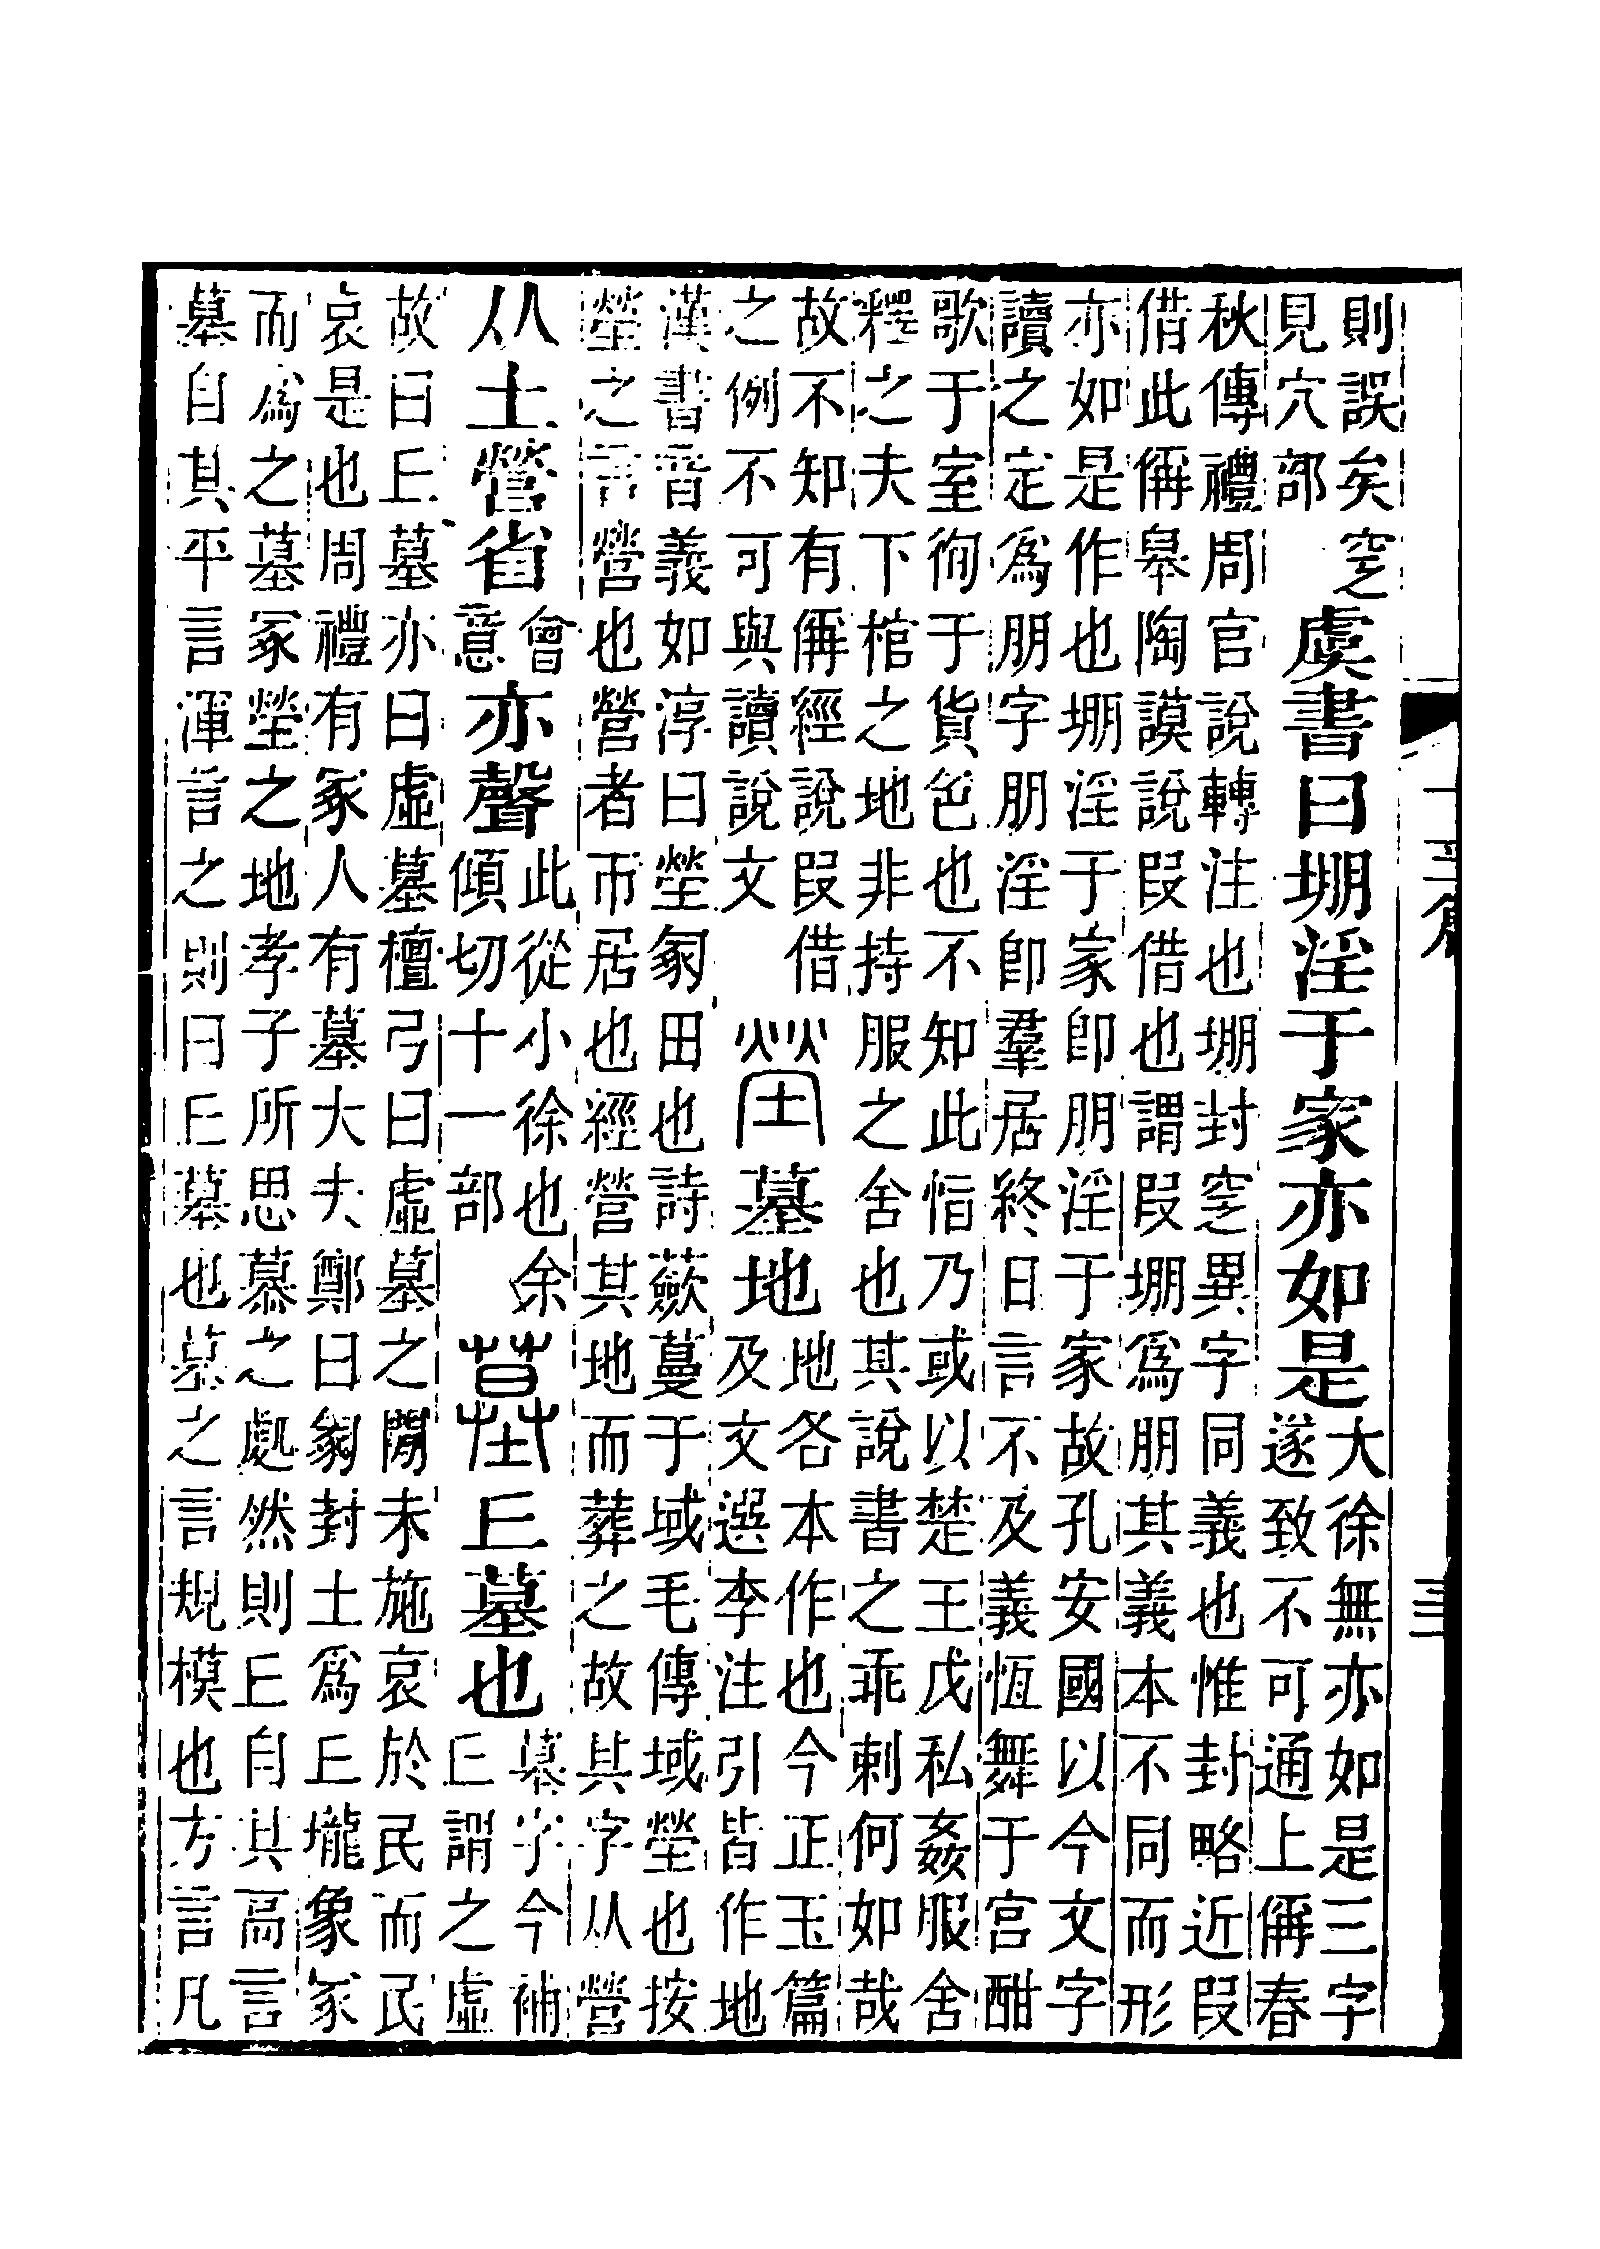 則誤矣窆
見穴部
虞書曰堋淫于家亦如是
大徐無亦如是三字
遂致不可通上偁春
秋傳禮周官說轉注也堋封窆異字同義也惟封略近叚
借此偁皋陶謨說叚借也謂叚堋爲朋其義本不同而形
亦如是作也堋淫于家卽朋淫于家故孔安國以今文字
讀之定爲朋字朋淫卽羣居終日言不及義恆舞于宮酣
歌于室徇于貨色也不知此恉乃或以楚王戊私姦服舍
釋之夫下棺之地非持服之舍也其說書之乖剌何如哉
故不知有偁經說叚借
之例不可與讀說文
塋墓地
地各本作也今正玉篇
及文選李注引皆作地
漢書音義如淳曰塋冢田也詩蘞蔓于域毛傳域塋也按
塋之言營也營者帀居也經營其地而葬之故其字从營
从土營省
會
意
亦聲
此從小徐也余
傾切十一部
墓丘墓也
墓字今補
丘謂之虛
故曰丘墓亦曰虛墓檀弓曰虛墓之閒未施哀於民而民
哀是也周禮有冢人有墓大夫鄭曰冢封土爲丘壠象冢
而爲之墓冢塋之地孝子所思慕之處然則丘自其高言
墓自其平言渾言之則曰丘墓也墓之言規模也方言凡